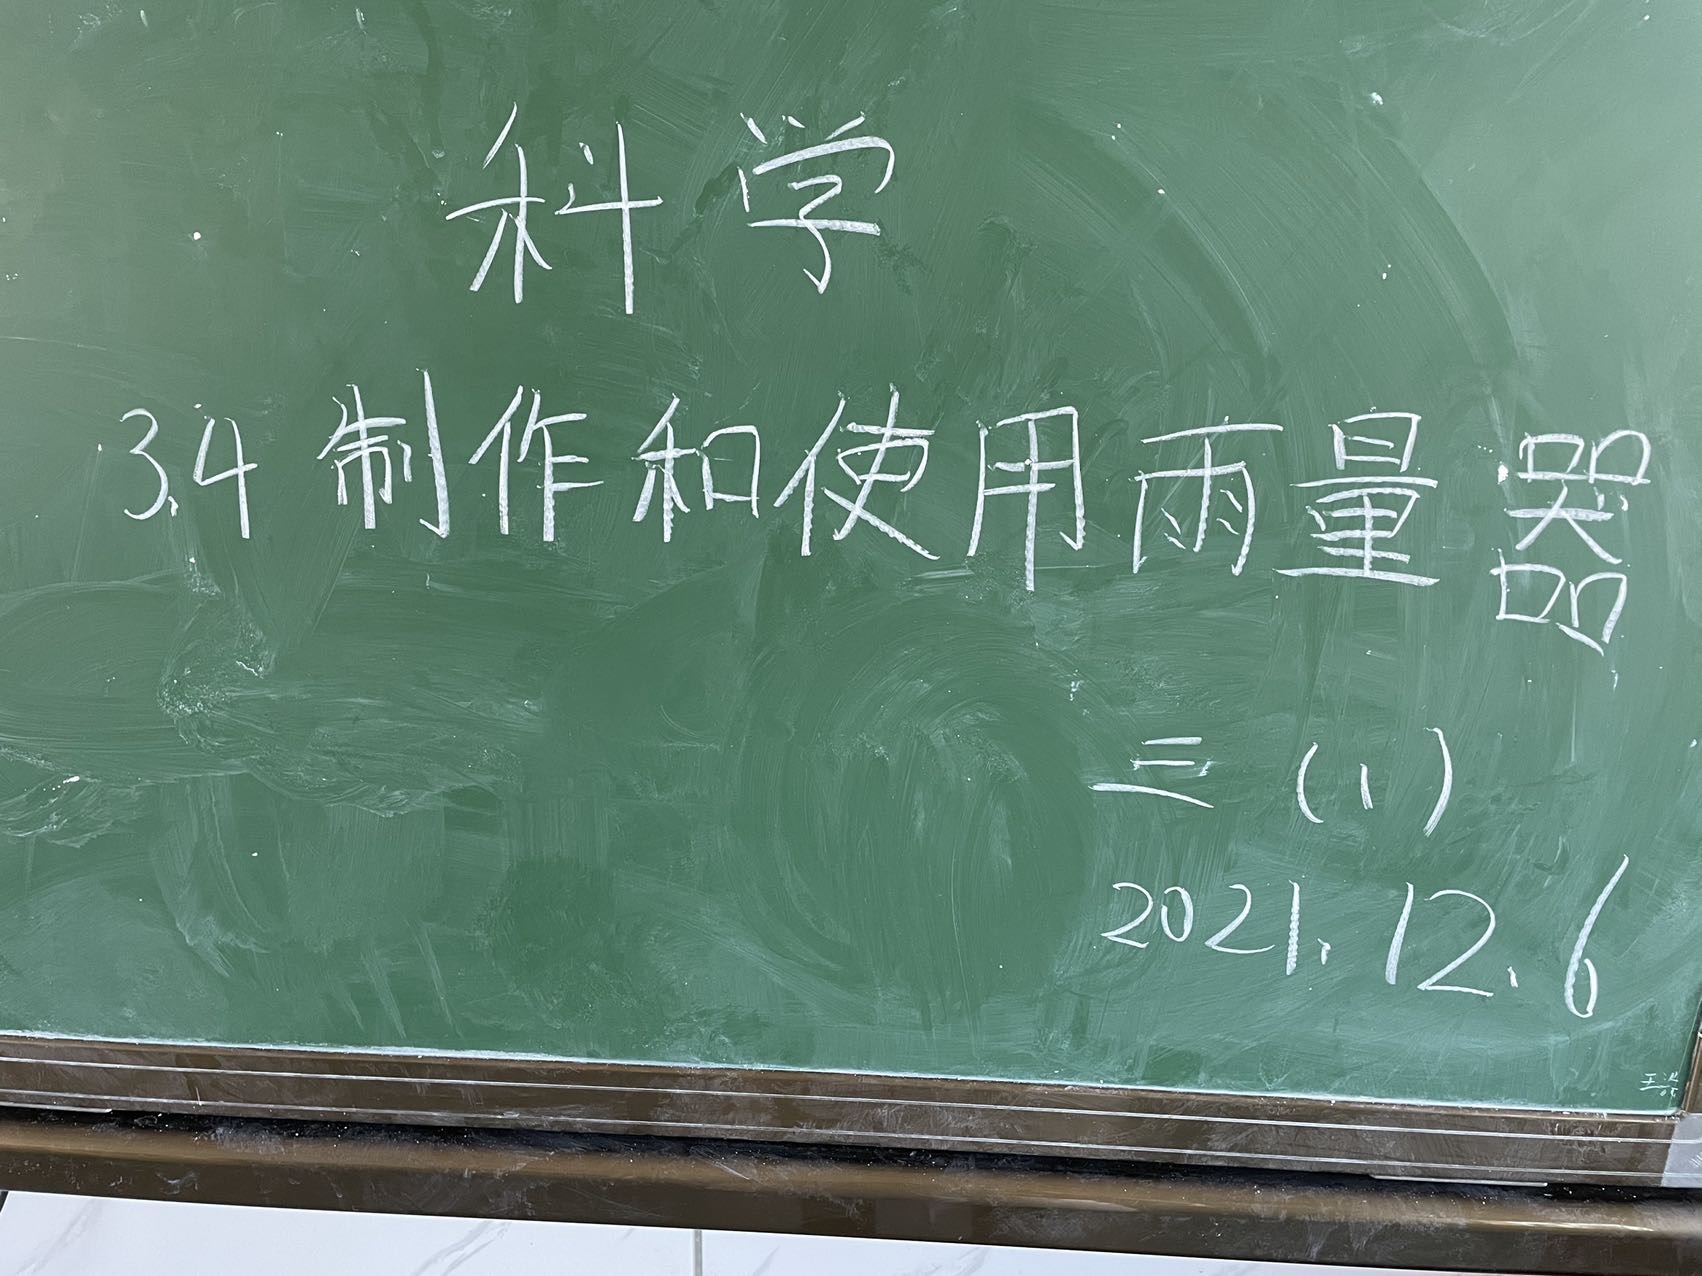 科学
3.4 制作和使用雨量器
三（1）
2021.12.6